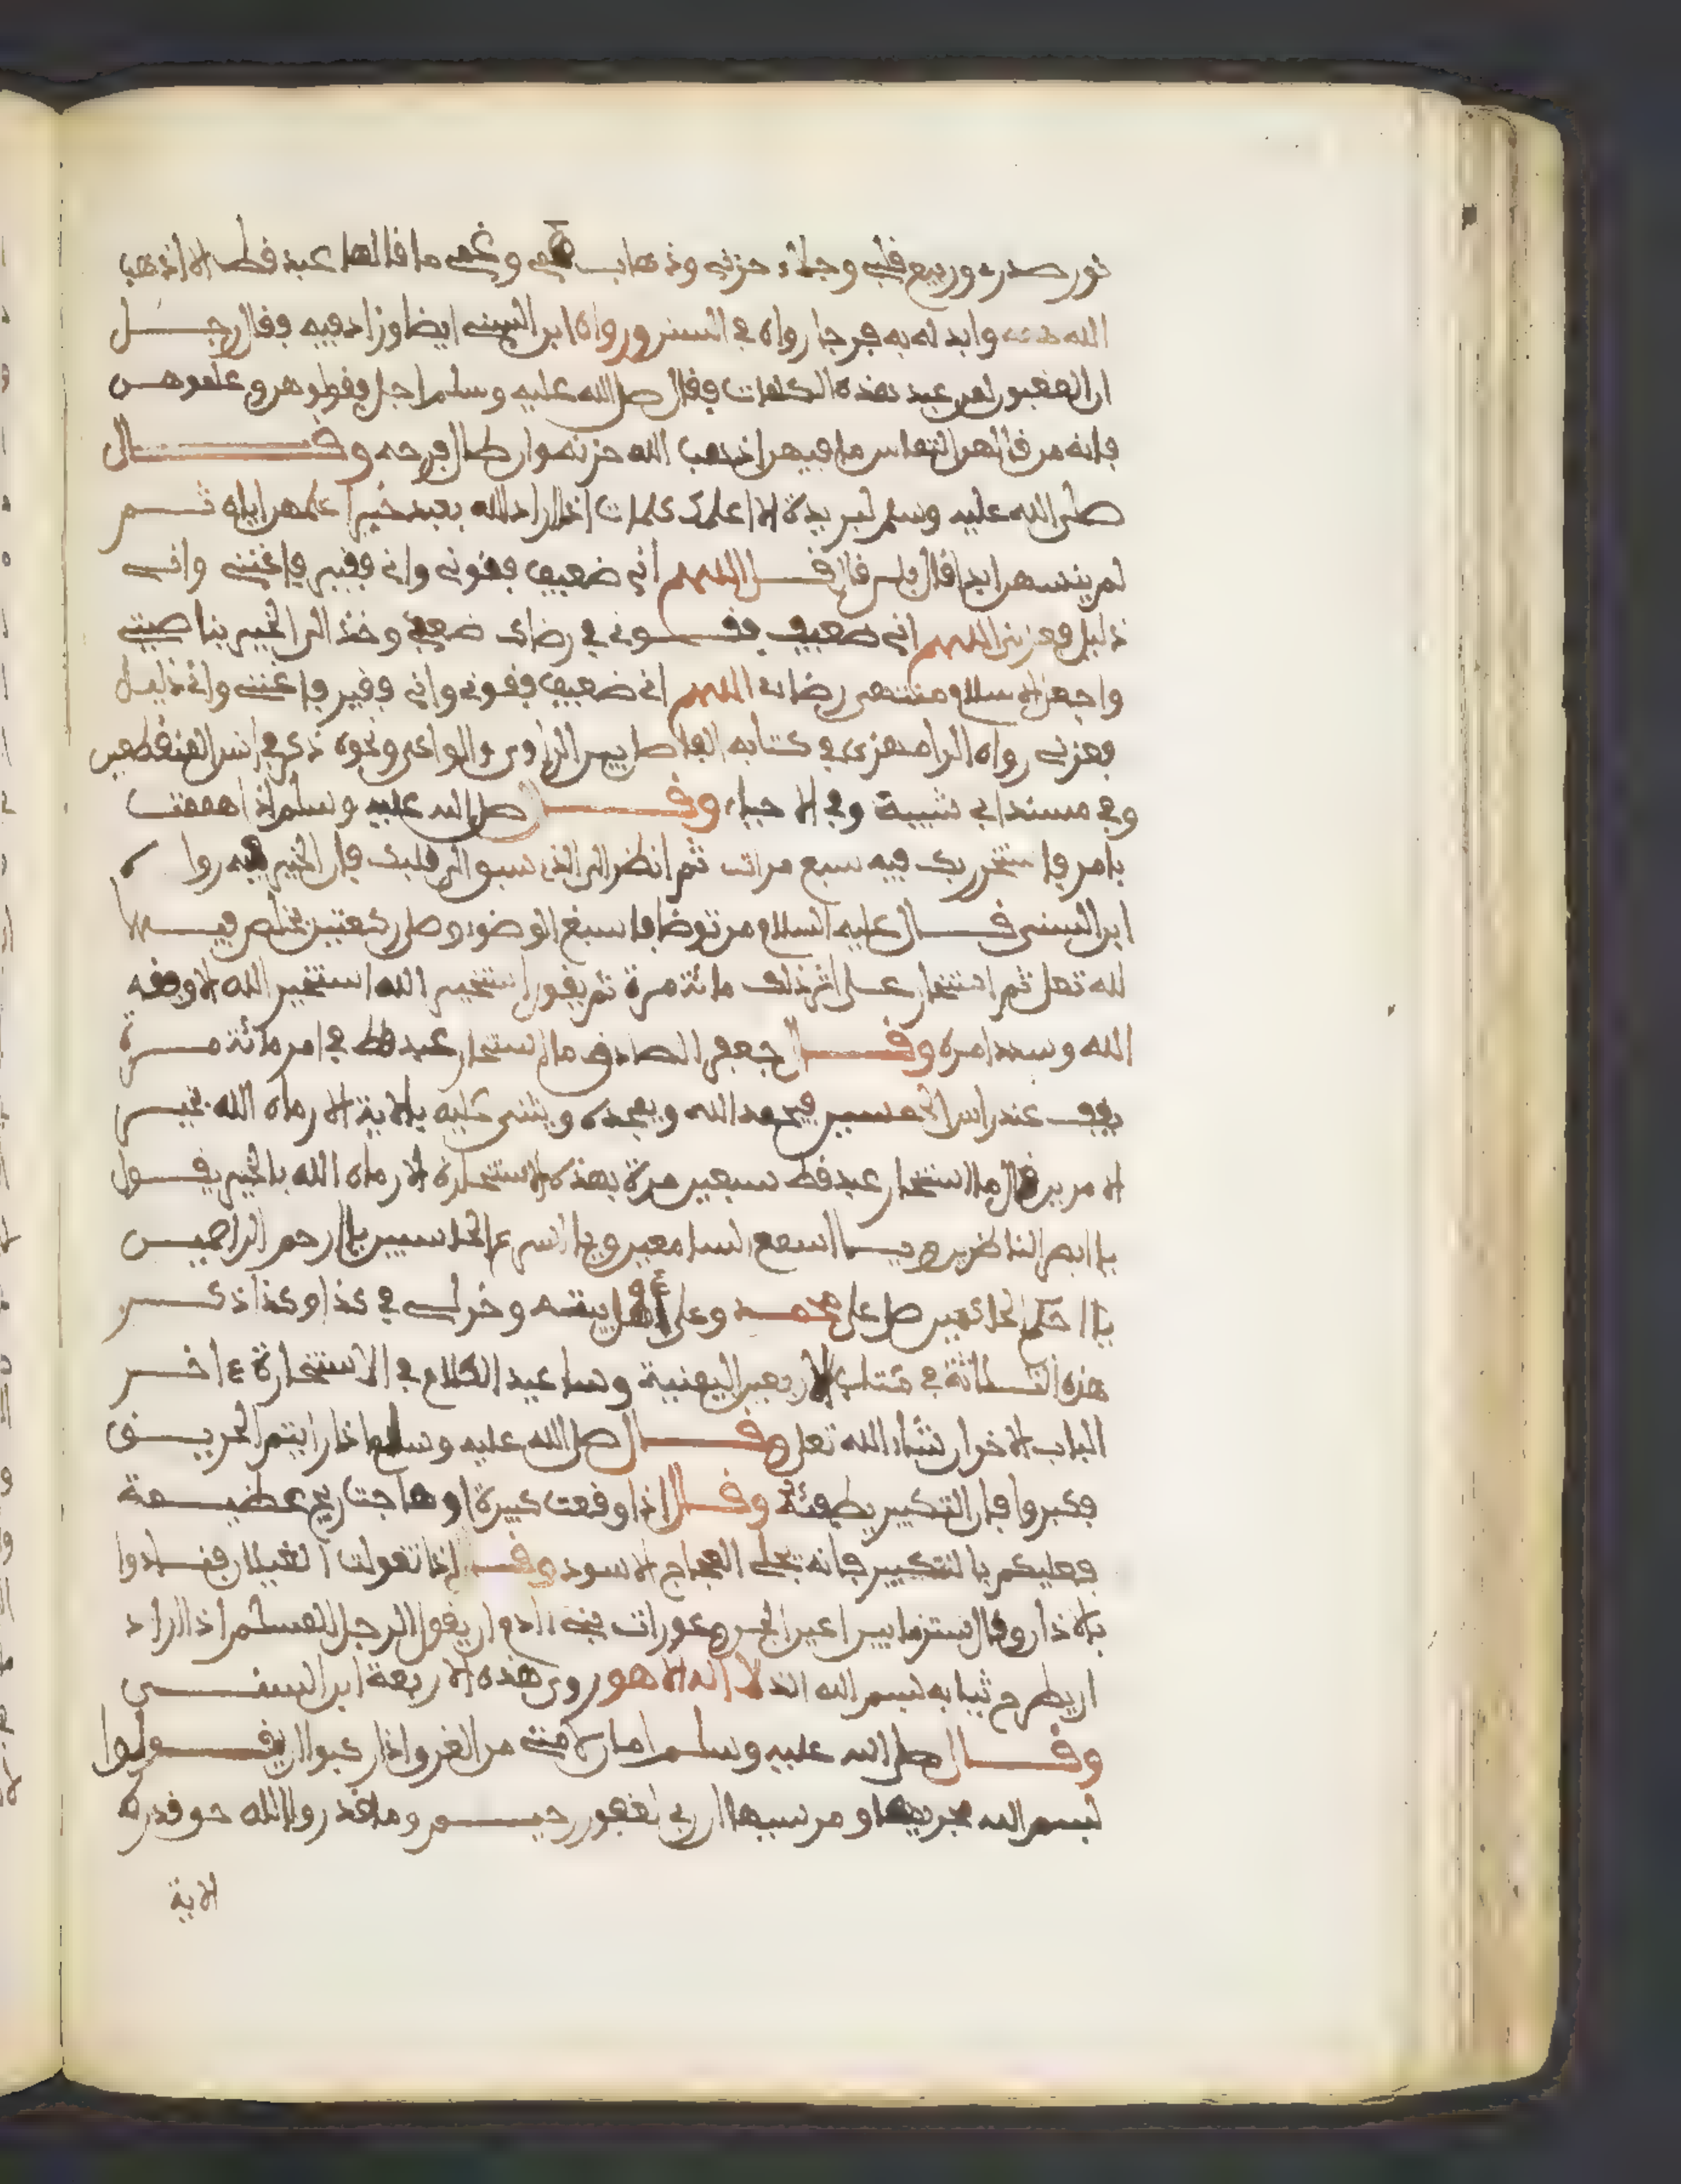 نور صدري وربيع قلبي وجلاء حزني وذهاب همي وغمي ما قالها عبد قط الا اذهب
الله همه وابدله به فرجا رواه في السنن ورواه ابن السني ايضا وزاد فيه فقال رجل
ان المغبون لمن غبن هذه الكلمات فقال صلى الله عليه وسلم اجل فقولوهن وعلموهن
فانه من قالهن التماس ما فيهن اذهب الله حزنه واطال فرحه وقال
صلى الله عليه وسلم لبريدة الا اعلمك كلمات اذا اراد الله بعبد خيرا علمهن اياه ثم
لم ينسهن ابدا قال بلى قال قل اللهم اني ضعيف فقوني واني فقير فاغنني واني
ذليل فعزني اللهم اني ضعيف فقوني في رضاك ضعفي وخذ الى الخير بناصيتي
واجعل الاسلام منتهى رضاي اللهم اني ضعيف فقوني واني فقير فاغنني واني ذليل
فعزني رواه الرامهرمزي في كتابه الفاصل بين الراوي والواعي ونحوه ذكر في
وفي مسند ابي شيبة وفي الاحياء وقال صلى الله عليه وسلم اذا هممت
بامر فاستخر ربك فيه سبع مرات ثم انظر الى الذي سبق الى قلبك فان الخير فيه رواه
ابن السني قال عليه السلام من توضا فاسبغ الوضوء وصلى ركعتين يخلص فيهما
لله تعلى ثم استخار على اثر ذلك مائة مرة ثم يقول استخير الله استخير الله الا وفقه
الله وسدد امره وقال جعفر الصادق ما استخار عبد قط في امر مائة مرة
يقف عند راس الحسين فيحمد الله ويمجده ويثني عليه بالاية الا رماه الله بخير
الامرين قال ما استخار عبد قط سبعين مرة بهذه الاستخارة الا رماه الله بالخير يقول
يا ابصر الناظرين ويا اسمع السامعين ويا اسرع الحاسبين يا ارحم الراحمين
يا احكم الحاكمين صل على محمد وعلى اهل بيته وخر لي في كذا وكذا ذكر
هذه الثلاثة في كتاب الاربعين اليمنية وساعيد الكلام في الاستخارة ع اخر
الباب الاخر ان شاء الله تعلى وقال صلى الله عليه وسلم اذا رايتم الحريق
فكبروا فان التكبير يطفئه وقال اذا وقعت كبيرة او هاجت ريح عظيمة
فعليكم بالتكبير فانه يجلي العجاج الاسود وقال اذا تغولت الغيلان فنادوا
بالاذان وقال ستر ما بين اعين الجن وعورات بني ادم ان يقول الرجل المسلم اذا اراد
ان يطرح ثيابه بسم الله الذي لا اله الا هو روى هذه الاربعة ابن السني
وقال صلى الله عليه وسلم امان لامتي من الغرق اذا ركبوا ان يقولوا
بسم الله مجريها ومرسيها ان ربي لغفور رحيم وما قدروا الله حق قدره
الاية